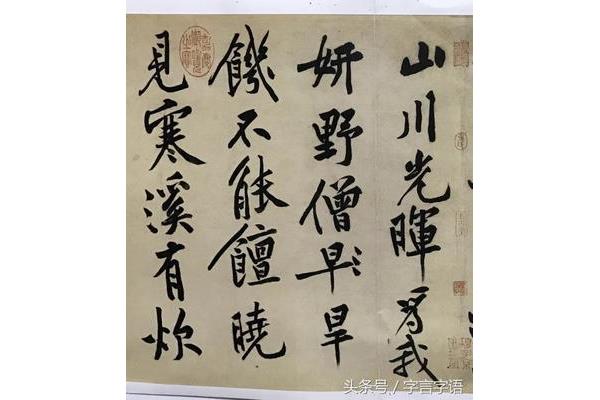 山川光暉為我
妍野僧早旱
饑不能饘曉
見寒溪有炊
头条号／字言字语